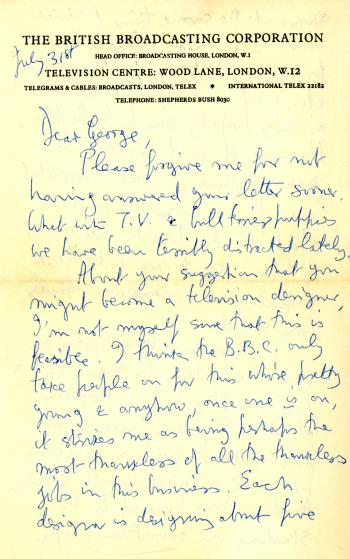 THE BRITISH BROADCASTING CORPORATION
HEAD OFFICE: BROADCASTING HOUSE, LONDON, W.1
July 31st
TELEVISION CENTRE: WOOD LANE, LONDON, W.12
TELEGRAMS & CABLES: BROADCASTS, LONDON, TELEX * INTERNATIONAL TELEX 22182
TELEPHONE: SHEPHERDS BUSH 8030
Dear George,
Please forgive me for not
having answered your letter sooner.
What with T.V. & bull terrier puppies
we have been terribly distracted lately.
About your suggestion that you
might become a television designer,
I'm not myself sure that this is
feasible. I think the B.B.C. only
take people on for this whilst pretty
young & anyhow, once one is on,
it strikes me as being perhaps the
most thankless of all the thankless
jobs in this business. Each
designer is designing about five